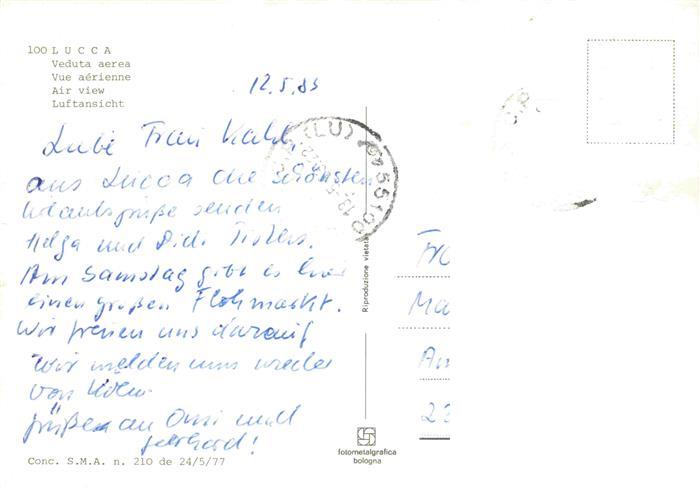 100 LUCCA
Veduta aerea
Vue aérienne
Air view
Luftansicht
12.5.83
Liebe Frau
aus Lucca die schönsten
Urlaubsgrüße senden
Helga und Didi
Am Samstag gibt es hier
einen großen Flohmarkt.
Wir freuen uns darauf
Wir melden uns wieder
von
Grüße an Omi und
Gerhard!
(LU)
55100
Riproduzione vietata
Fr
Ma
Am
23
fotometalgrafica
bologna
Conc. S.M.A. n. 210 de 24/5/77